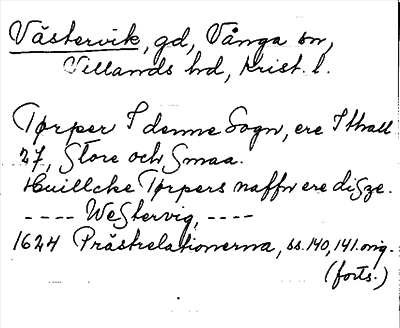 Västervik, gd, Vånga sn,
Villands hd, Krist. l.
Tørper I denne Sogn, ere I thall
27, Store och Smaa.
Huillcke Tørpers naffn ere diSze.
---- WeStervig, ----
1624 Prästrelationerna, ss. 140, 141. orig.
(forts.)